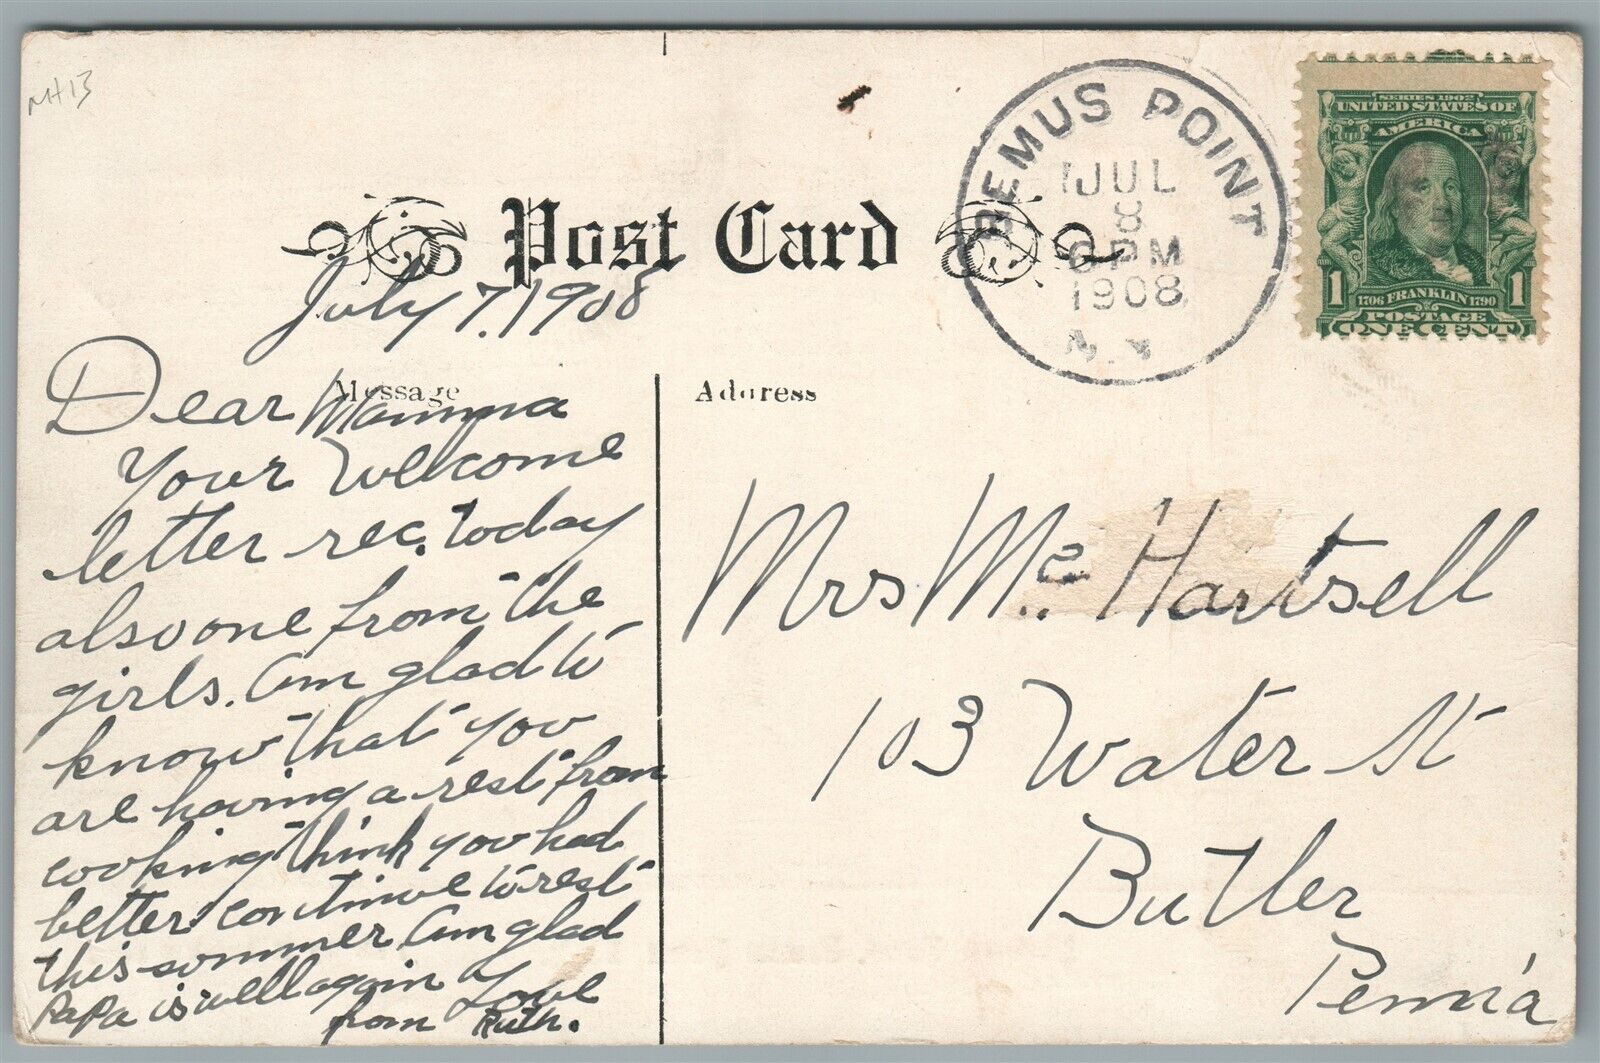 MH13
Post Card
BEMUS POINT
JUL
8
6 PM
1908
N.Y.
SERIES 1902
UNITED STATES OF
AMERICA
1 1706 FRANKLIN 1790 1
POSTAGE
ONE CENT
July 7. 1908
Message
Dear Mamma
Your Welcome
letter rec. today
also one from the
girls. Am glad to
know that you
are having a rest from
cooking think you had
better continue to rest
this summer Am glad
PaPa is well again
Love
from Ruth.
Address
Mrs Mc. Hartsell
103 Water St
Butler
Penn'a